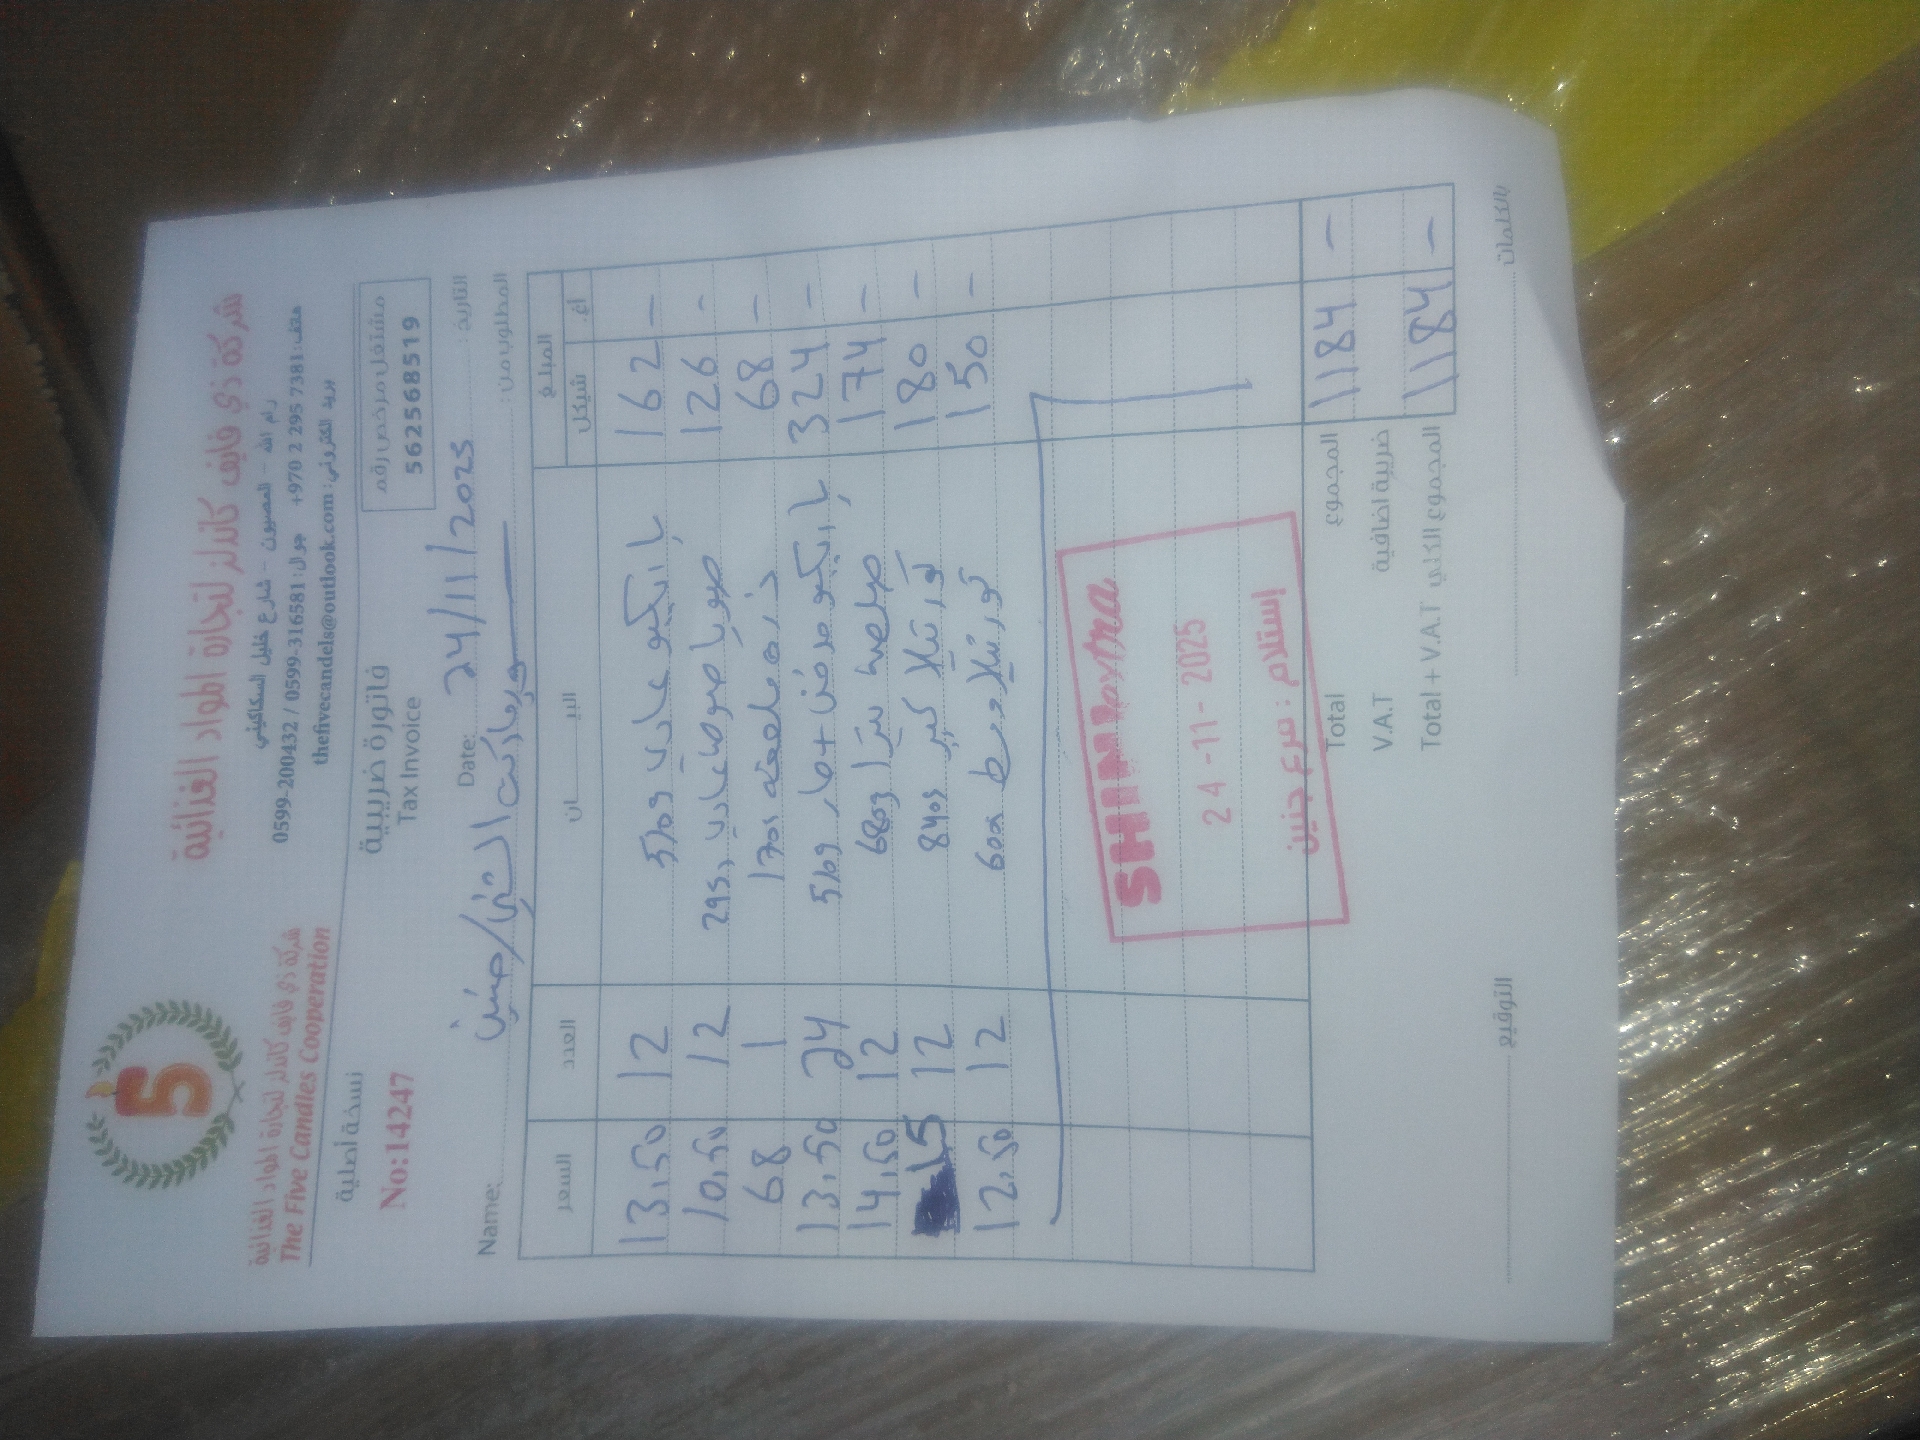 شركة ذي فايف كاندلز لتجارة المواد الغذائية
رام الله - المصيون - شارع خليل السكاكيني
هاتف: +970 2 295 7381 جوال: 0599-316581 / 0599-200432
بريد الكتروني: thefivecandels@outlook.com
5
شركة ذي فايف كاندلز لتجارة المواد الغذائية
The Five Candles Cooperation
مشتغل مرخص رقم
562568519
فاتورة ضريبية
Tax Invoice
نسخة أصلية
No:14247
التاريخ: 24/11/2025 Date:
المطلوب من: سوبرماركت الشني/جنين Name:
المبلغ البيـــان العدد السعر
أغ. شيكل
- 162 باربكيو عادي 510 12 13,50
- 126 صويا صوص عادي 295 12 10,50
- 68 170 1 68
- 324 باربكيو مدخن + حار 510 24 13,50
- 174 680 12 14,50
- 180 تورتيلا كبير 840 12 15
- 150 تورتيلا وسط 600 12 12,50
SHINI extra
24-11-2025
إستلام: فرع جنين
- 1184 المجموع Total
ضريبة اضافية V.A.T
- 1184 المجموع الكلي Total + V.A.T
بالكلمات
التوقيع